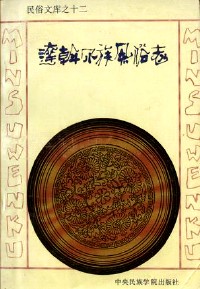 民俗文库之十二
達斡尔族风俗志
MINSUWENKU
MINSUWENKU
中央民族学院出版社